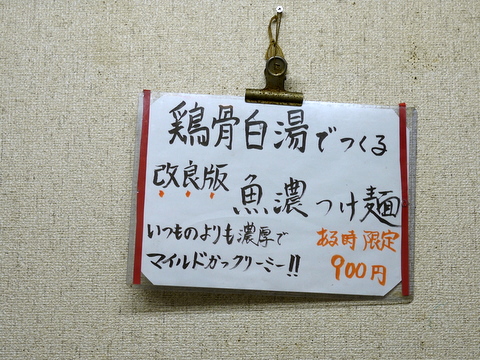 鶏骨白湯でつくる
改良版 魚濃つけ麺
いつものよりも濃厚で
マイルドかつクリーミー!!
ある時限定
900円